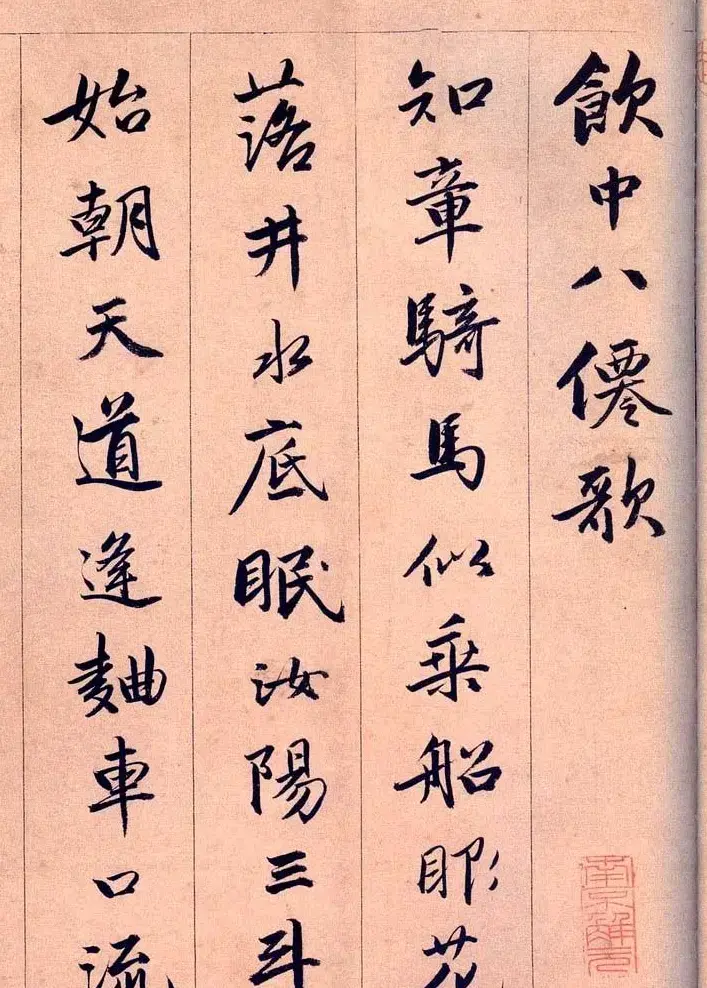 飲中八僊歌
知章騎馬似乘船眼花
落井水底眠汝陽三斗
始朝天道逢麯車口流
南京解元